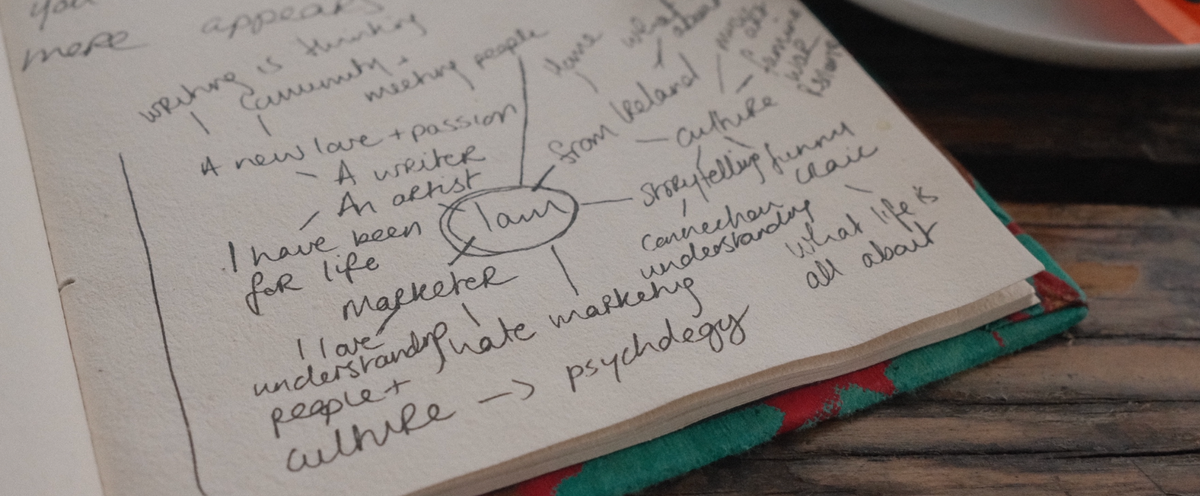 you
more appears
writing is thinking
community +
meeting people
A new love + passion
A writer
An artist
I have been
for life
I am
from Ireland
home
what
about
culture
famine
war
storytelling
funny
craic
connection
understanding
what life is
all about
marketer
I love
understanding
people +
culture -> psychology
I hate marketing